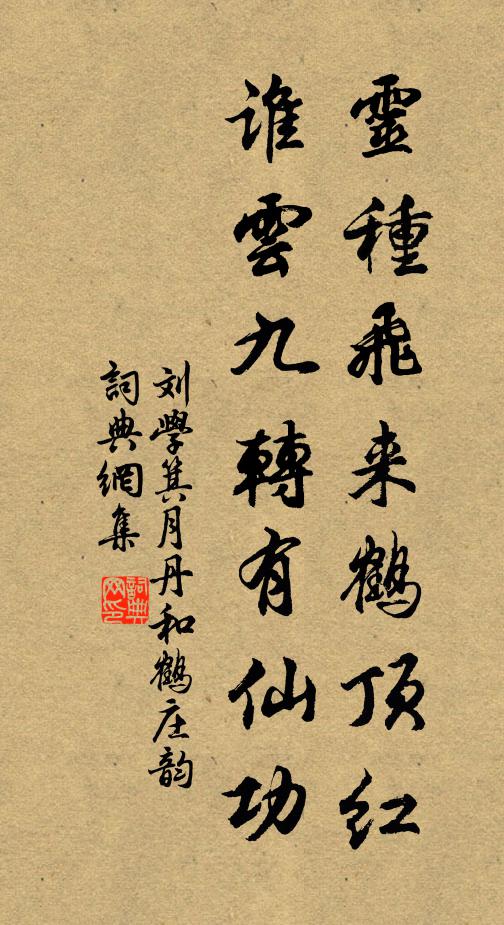 靈種飛来鶴顶红
誰雲九轉有仙功
刘學箕月丹和鶴庄韵
詞典網集
詞典網印